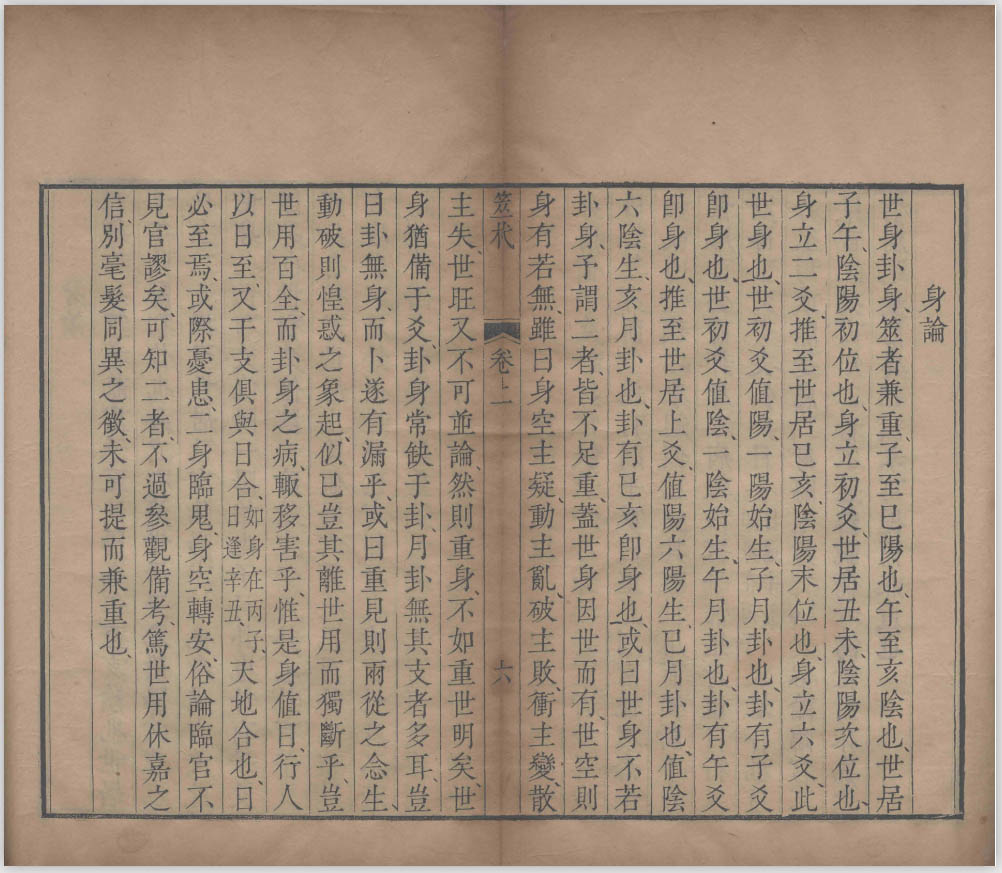 身論
世身卦身、筮者兼重、子至巳陽也、午至亥陰也、世居
子午、陰陽初位也、身立初爻、世居丑未、陰陽次位也、
身立二爻、推至世居巳亥、陰陽末位也、身立六爻、此
世身也、世初爻值陽、一陽始生、子月卦也、卦有子爻
卽身也、世初爻值陰、一陰始生、午月卦也、卦有午爻
卽身也、推至世居上爻、值陽六陽生、巳月卦也、值陰
六陰生、亥月卦也、卦有巳亥卽身也、或曰世身不若
卦身、予謂二者、皆不足重、蓋世身因世而有、世空則
身有若無、雖曰身空主疑、動主亂、破主敗、衝主變、散
筮杙 卷上 六
主失、世旺又不可並論、然則重身、不如重世明矣、世
身猶備于爻、卦身常缺于卦、月卦無其支者多耳、豈
曰卦無身、而卜遂有漏乎、或曰重見則兩從之念生、
動破則惶惑之象起、似已豈其離世用而獨斷乎、豈
世用百全、而卦身之病、輙移害乎、惟是身值日、行人
以日至、又干支俱與日合、如身在丙子、日逢辛丑、天地合也、日
必至焉、或際憂患、二身臨鬼、身空轉安、俗論臨官不
見官謬矣、可知二者、不過參觀備考、篤世用休嘉之
信、別毫髮同異之徵、未可提而兼重也、